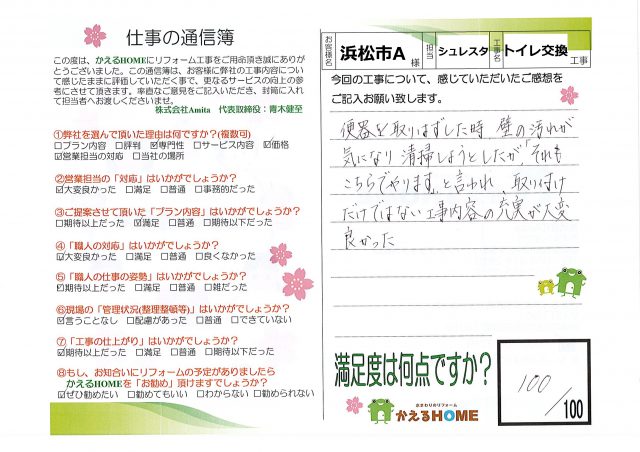 仕事の通信簿
この度は、かえるHOMEにリフォーム工事をご用命頂き誠にありが
とうございました。この通信簿は、お客様に弊社の工事内容につい
て感じたままに評価していただく事で、更なるサービスの向上の参
考にさせて頂きます。率直なご意見をご記入いただき、封筒に入れ
て担当者へお渡しくださいませ。
株式会社Amita 代表取締役：青木健至
①弊社を選んで頂いた理由は何ですか？(複数可)
□プラン内容 □評判 ☑専門性 □サービス内容 ☑価格
☑営業担当の対応 □当社の場所
②営業担当の「対応」はいかがでしょうか？
☑大変良かった □満足 □普通 □事務的だった
③ご提案させて頂いた「プラン内容」はいかがでしょうか？
□期待以上だった ☑満足 □普通 □期待以下だった
④「職人の対応」はいかがでしょうか？
☑大変良かった □満足 □普通 □良くなかった
⑤「職人の仕事の姿勢」はいかがでしょうか？
☑期待以上だった □満足 □普通 □雑だった
⑥現場の「管理状況(整理整頓等)」はいかがでしょうか？
☑言うことなし □配慮があった □普通 □できていない
⑦「工事の仕上がり」はいかがでしょうか？
☑期待以上だった □満足 □普通 □期待以下だった
⑧もし、お知合いにリフォームの予定がありましたら
かえるHOMEを「お勧め」頂けますでしょうか？
☑ぜひ勧めたい □勧めてもいい □わからない □勧められない
お客様名 浜松市A 様 担当 シュレスタ 工事名 トイレ交換 工事
今回の工事について、感じていただいたご感想を
ご記入お願い致します。
便器を取りはずした時、壁の汚れが
気になり清掃しようとしたが、「それも
こちらでやります」と言われ、取り付け
だけではない工事内容の充実が大変
良かった
満足度は何点ですか？
100/100
水まわりのリフォーム
かえるHOME